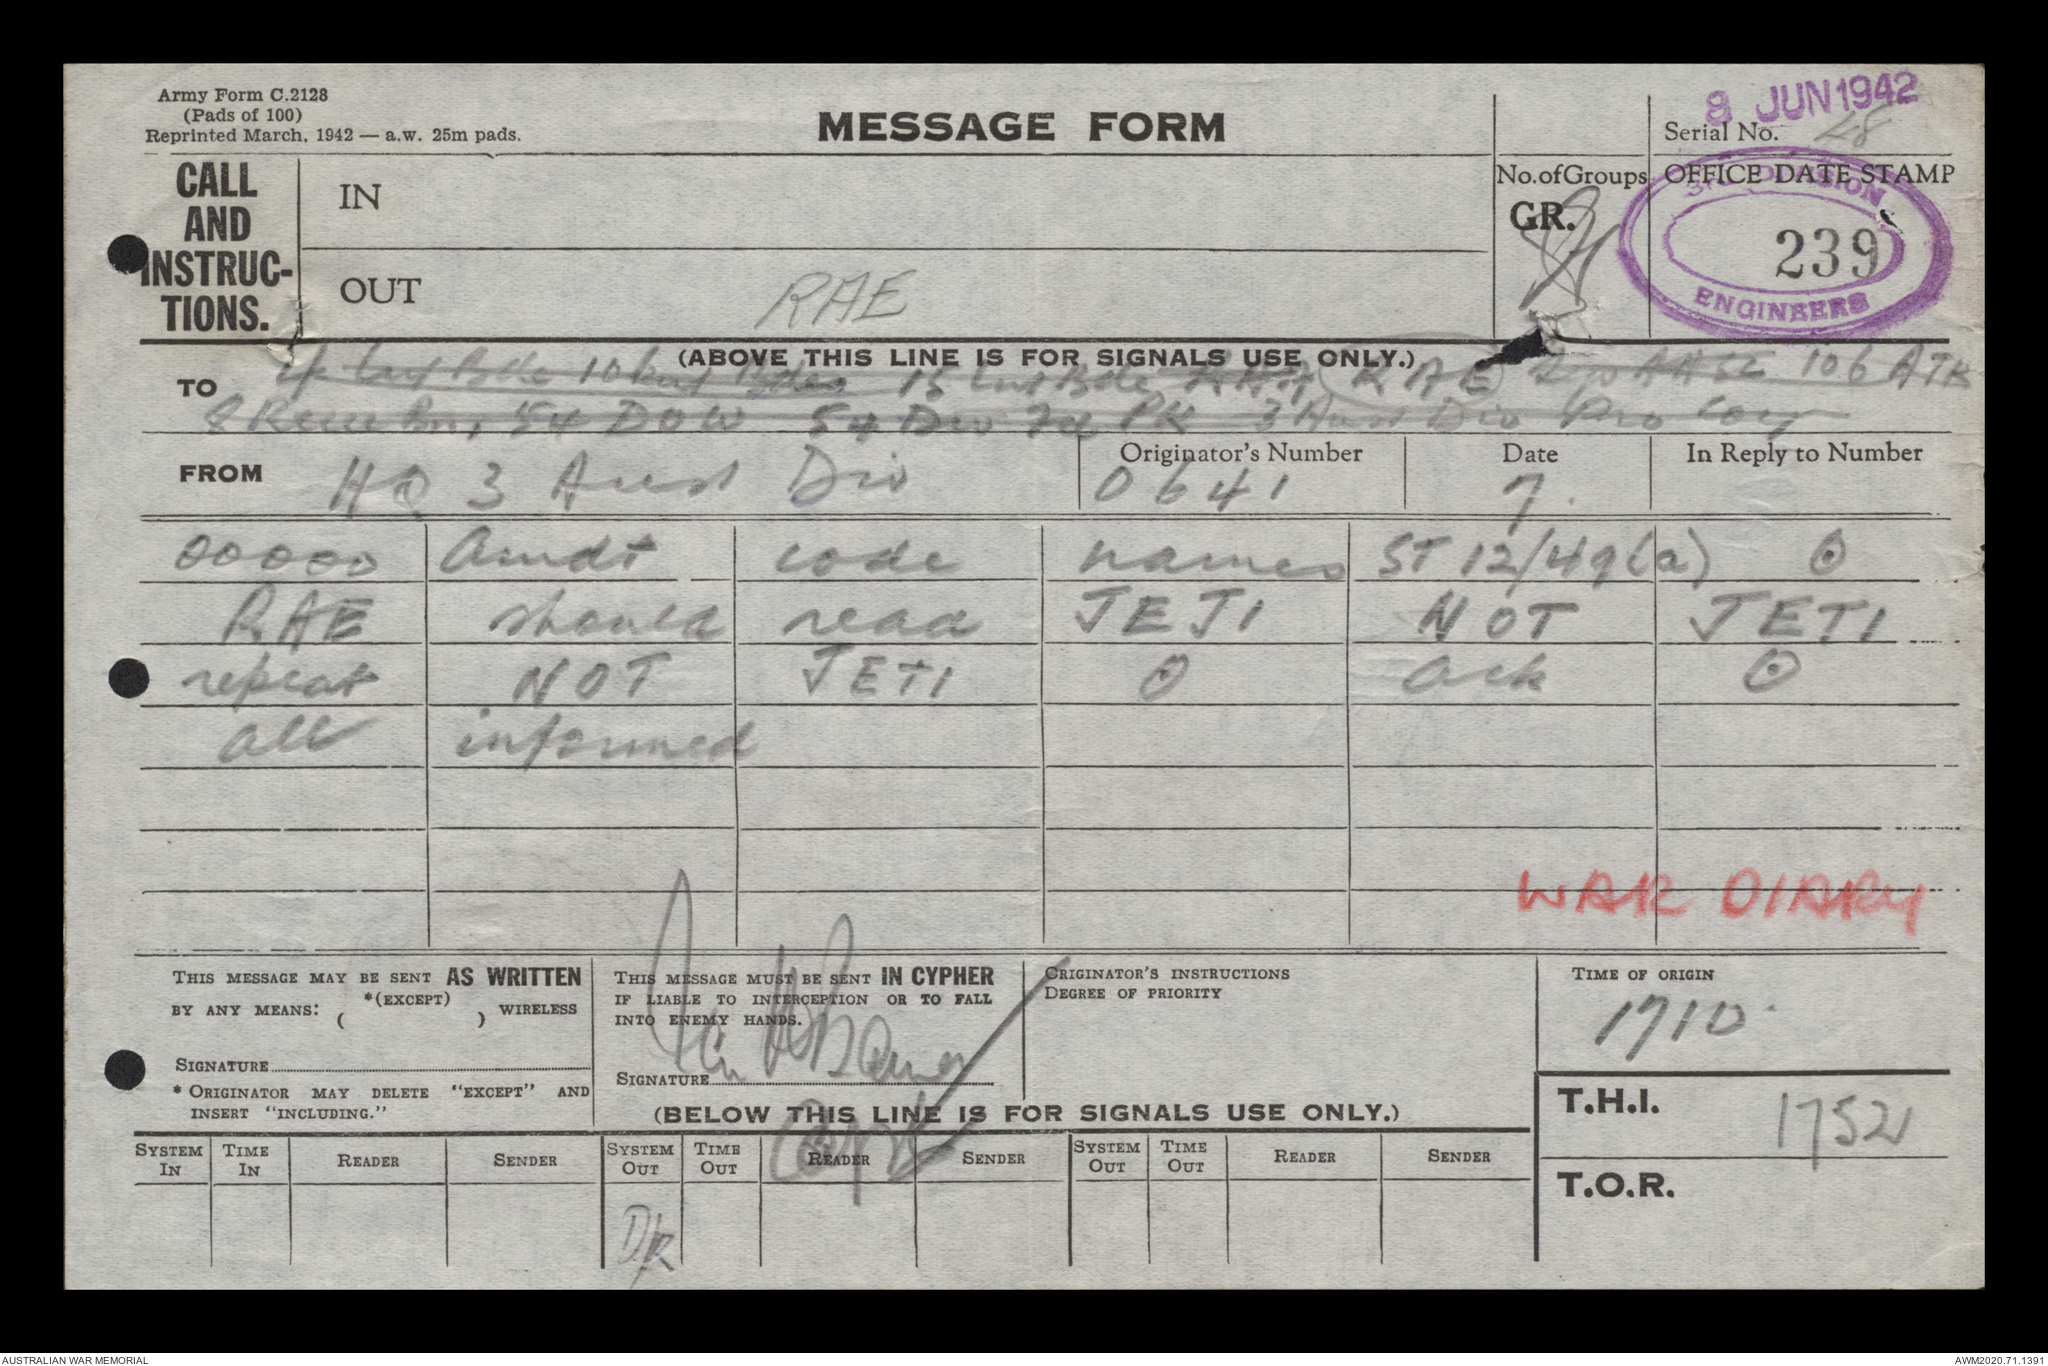 Army Form C.2128
(Pads of 100)
Reprinted March, 1942 — a.w. 25m pads.
MESSAGE FORM
8 JUN 1942
Serial No. 48
CALL AND INSTRUC-TIONS.
IN
No. of Groups
GR.
OFFICE DATE STAMP
3RD DIVISION
239
ENGINEERS
OUT RAE
(ABOVE THIS LINE IS FOR SIGNALS USE ONLY.)
TO 4 Inf Bde 10 Inf Bde 15 Inf Bde RAA RAE AASC 106 ATK
8 Recce Bn, 54 DOW 54 Div Fd PK 3 Aust Div Pro Coy
FROM HQ 3 Aust Div
Originator's Number 0641
Date 7.
In Reply to Number
00000 Amdt code names ST 12/49(a) ⊙
RAE should read JEJI NOT JETI
repeat NOT JETI ⊙ ack ⊙
all informed
WAR DIARY
THIS MESSAGE MAY BE SENT AS WRITTEN
BY ANY MEANS: *(EXCEPT) ( ) WIRELESS
SIGNATURE
* ORIGINATOR MAY DELETE "EXCEPT" AND
INSERT "INCLUDING."
THIS MESSAGE MUST BE SENT IN CYPHER
IF LIABLE TO INTERCEPTION OR TO FALL
INTO ENEMY HANDS.
SIGNATURE
Capt
ORIGINATOR'S INSTRUCTIONS
DEGREE OF PRIORITY
TIME OF ORIGIN
1710.
T.H.I. 1752
T.O.R.
(BELOW THIS LINE IS FOR SIGNALS USE ONLY.)
SYSTEM IN TIME IN READER SENDER SYSTEM OUT TIME OUT READER SENDER SYSTEM OUT TIME OUT READER SENDER
D/R
AUSTRALIAN WAR MEMORIAL
AWM2020.71.1391